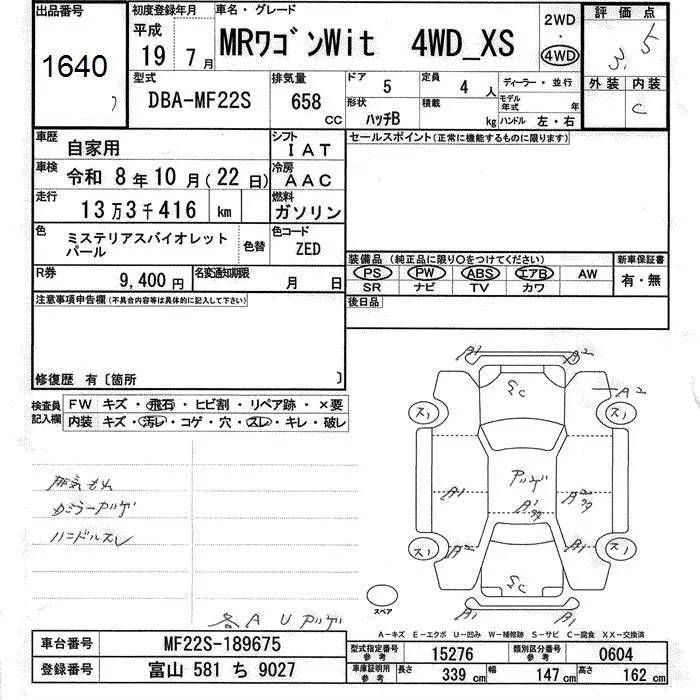 出品番号
1640
初度登録年月
平成
19年 7月
車名・グレード
MRワゴンWit 4WD_XS
2WD
・
4WD
評価点
3.5
外装 内装
C
型式
DBA-MF22S
排気量
658 CC
ドア
5
定員
4 人
形状
ハッチB
積載
kg
ディーラー・並行
モデル年式 年
ハンドル 左・右
車歴
自家用
シフト
IAT
車検
令和 8年 10月(22日)
冷房
AAC
走行
13万3千416 km
燃料
ガソリン
色
ミステリアスバイオレットパール
色替
色コード
ZED
R券
9,400 円
名変通知期限
月 日
セールスポイント(正常に機能するものに限ります)
装備品(純正品に限り○をつけてください)
PS PW ABS エアB AW
SR ナビ TV カワ
新車保証書
有・無
後日品
注意事項申告欄(不具合内容等は具体的に記入して下さい)
修復歴 有〔箇所 〕
検査員記入欄
FW キズ・飛石・ヒビ割・リペア跡・×要
内装 キズ・汚レ・コゲ・穴・スレ・キレ・破レ
排気もれ
カミラーアツゲ
ハンドルスレ
各A U アツゲ
A1 A2
S C
A2
ス1 ス1
アツゲ
A1
A1
A2
ス1 ス1
A2 A1
S C
A1 A1
スペア
A-キズ E-エクボ U-凹み W-補修跡 S-サビ C-腐食 XX-交換済
車台番号
MF22S-189675
登録番号
富山 581 ち 9027
型式指定番号
参考
15276
類別区分番号
参考
0604
車庫証明用
参考
長さ
339 cm
幅
147 cm
高さ
162 cm